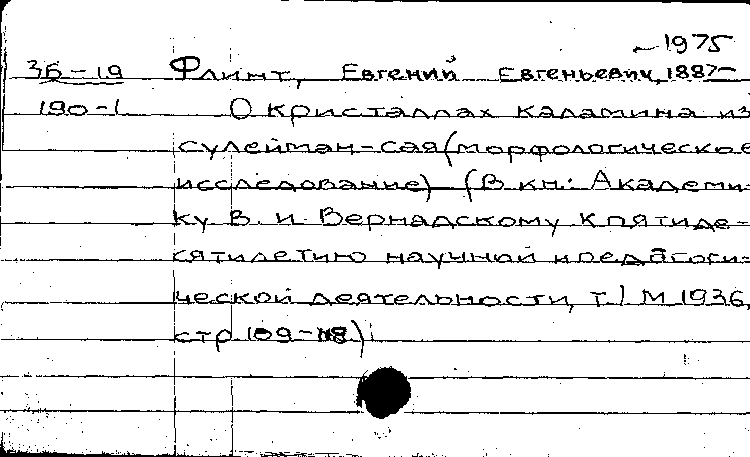 –1975
36-19 Флинт, Евгений Евгеньевич, 1887–
190-1 О кристаллах каламина из
сулейман-сая (морфологическое
исследование) (В кн: Академи-
ку В. и. Вернадскому к пятиде-
сятилетию научной и педагоги-
ческой деятельности, т. 1 М 1936,
стр 109-118)